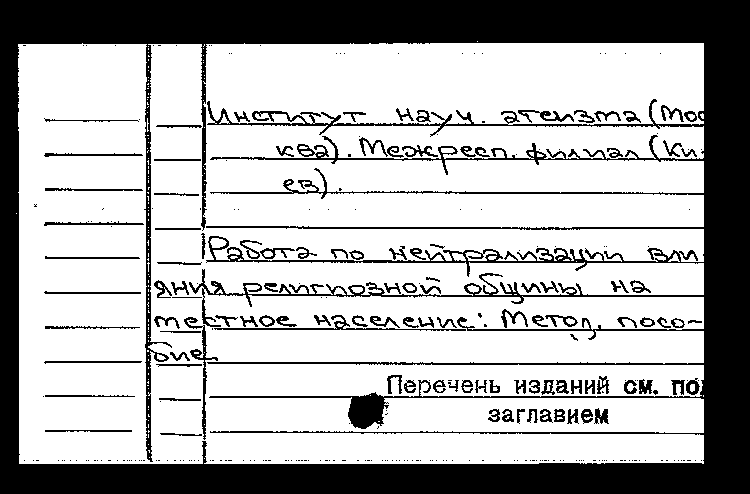 Институт науч. атеизма (Мос
ква). Межресп. филиал (Ки-
ев).
Работа по нейтрализации вли
яния религиозной общины на
местное население: Метод. посо-
бие
Перечень изданий см. под
заглавием